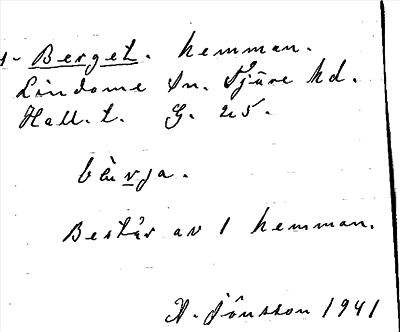 Berget. hemman.
Lindome Sn. Fjäre hd.
Hall. l. G. 25.
bä̀rja.
Består av 1 hemman.
A. Jönsson 1941